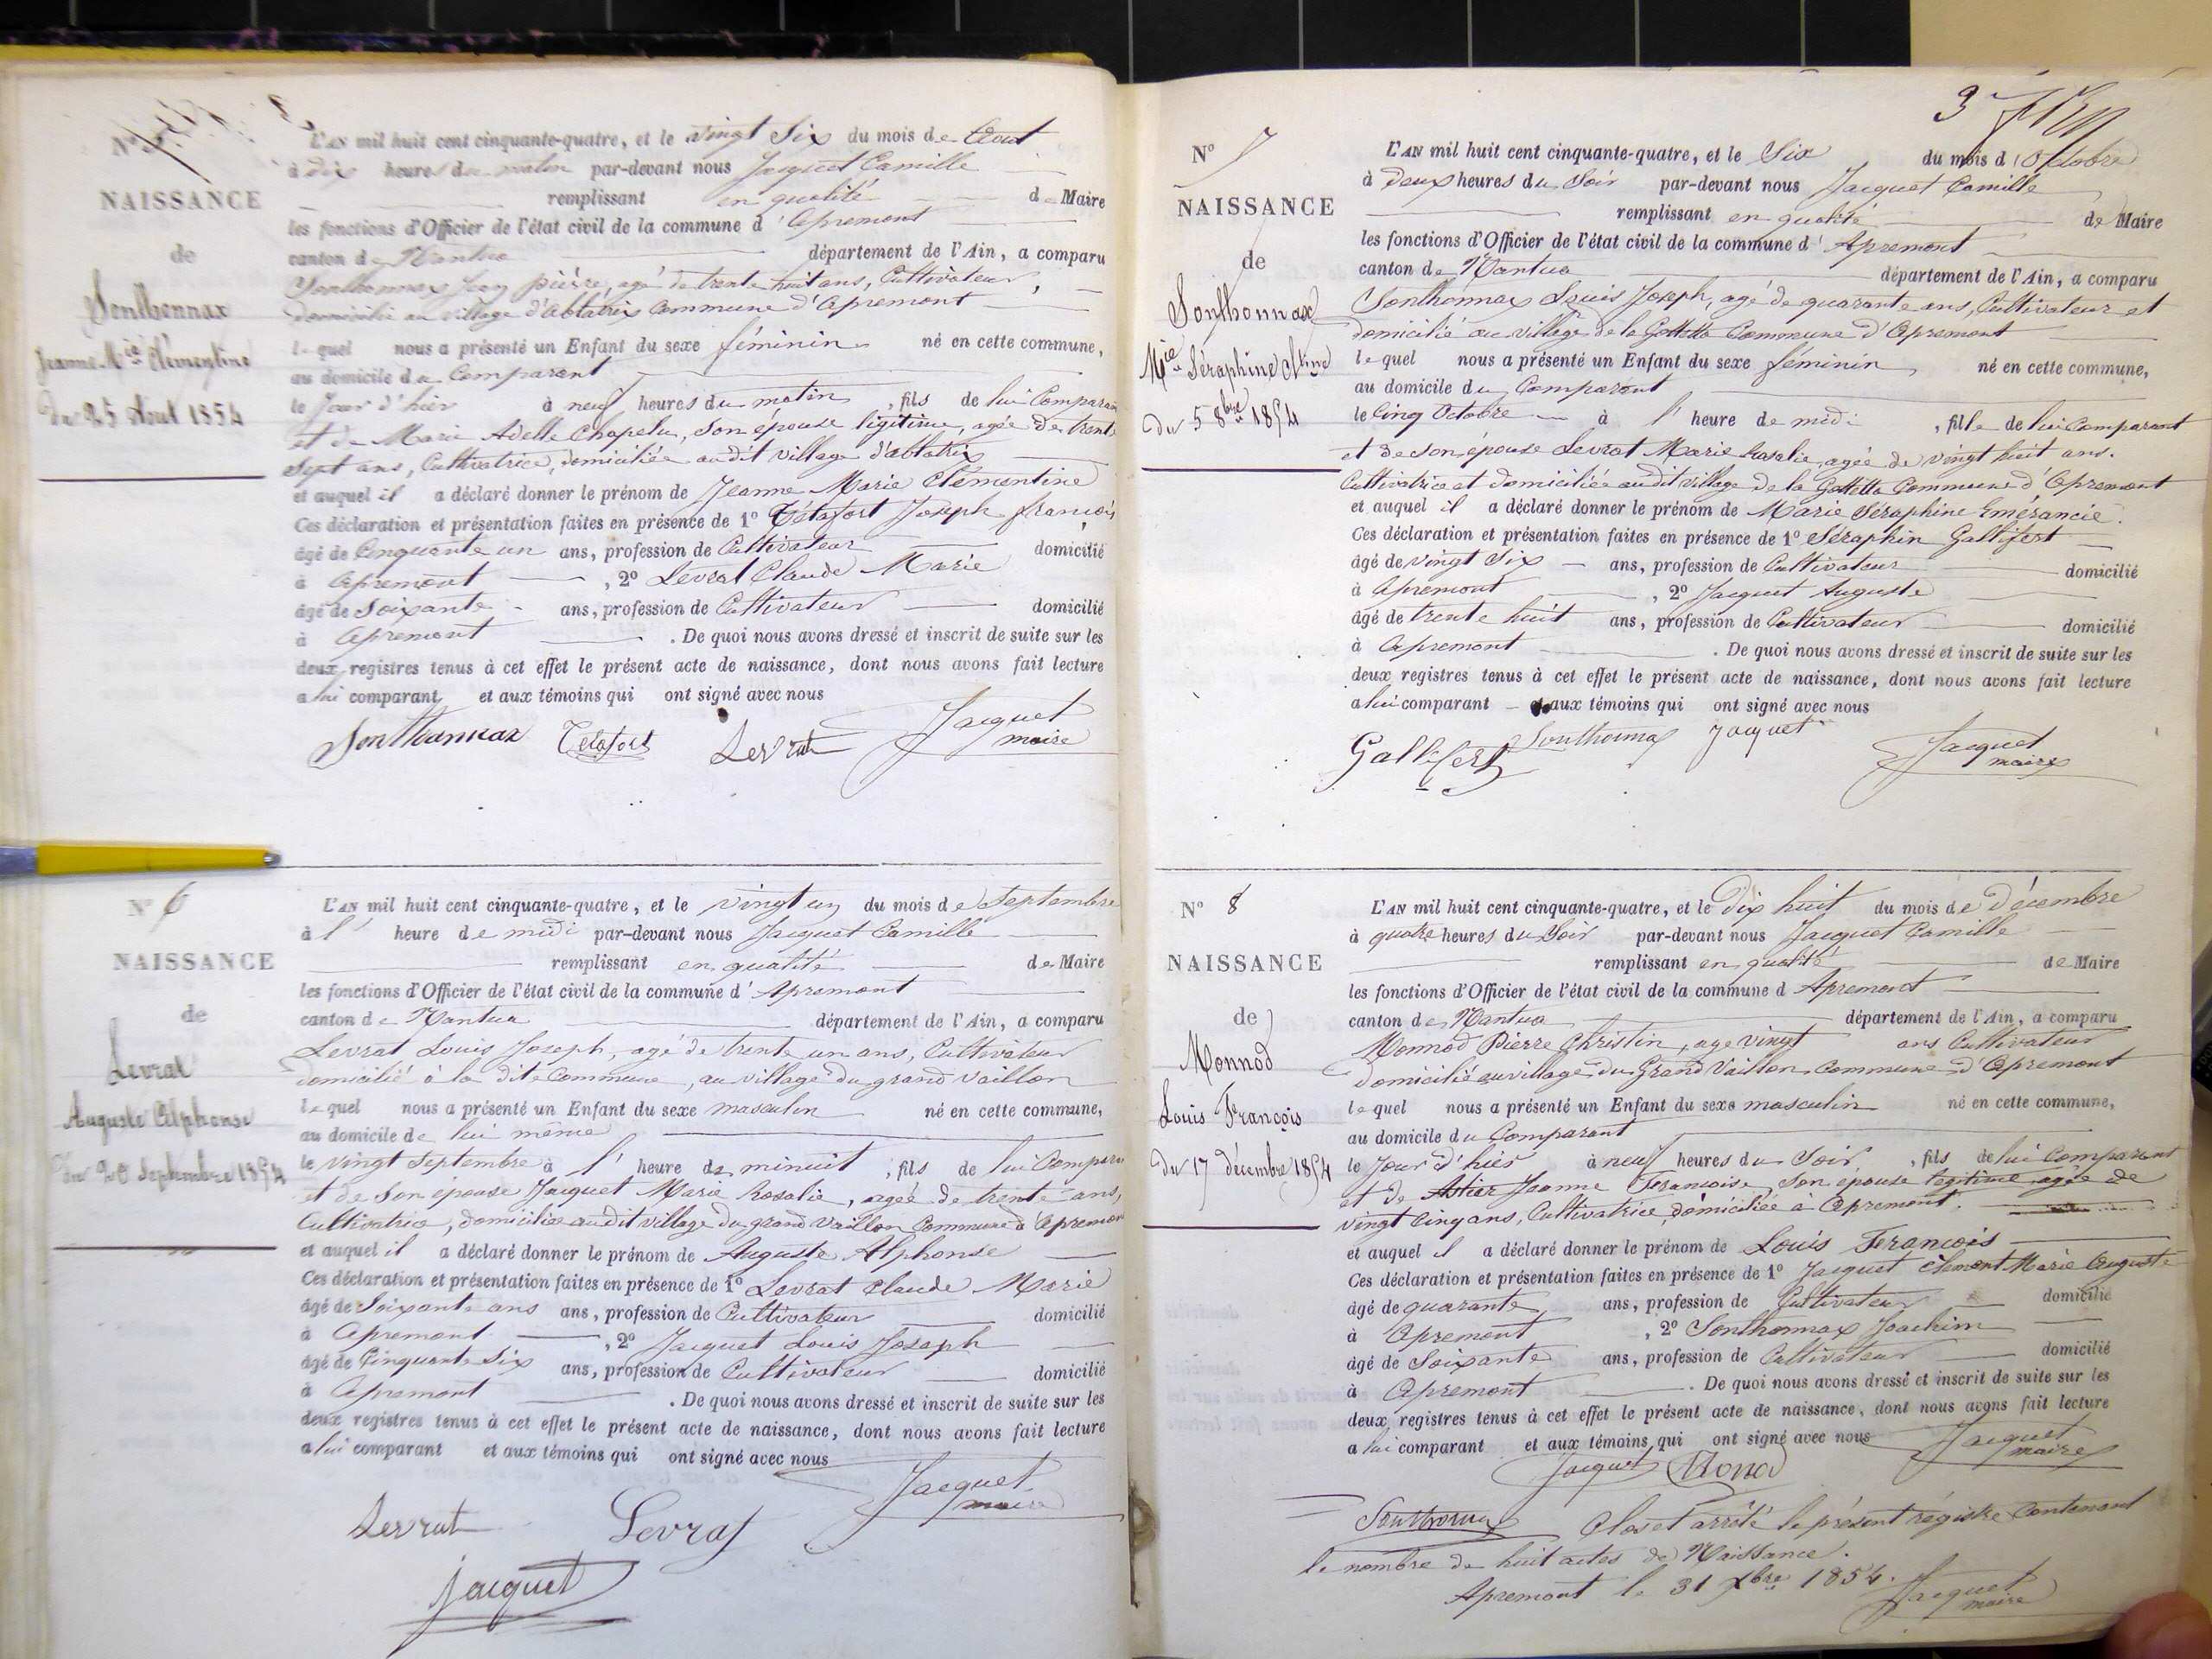 N°
NAISSANCE
de
Sonthonnax
Jeanne Mie Clémentine
Du 25 Aout 1854
L'AN mil huit cent cinquante-quatre, et le vingt Six du mois de Aout
à dix heures du matin par-devant nous Jacquet Camille
remplissant en qualité de Maire
les fonctions d'Officier de l'état civil de la commune d'Apremont
canton de Nantua département de l'Ain, a comparu
Sonthonnax Jean pierre, agé de trente huit ans, Cultivateur,
domicilié au village d'ablatrix Commune d'Apremont
lequel nous a présenté un Enfant du sexe féminin né en cette commune,
au domicile du Comparant
le Jour d'hier à neuf heures du matin, fils de lui Comparant
et de Marie Adelle Chapelu, Son épouse légitime, agée de trente
Sept ans, Cultivatrice, domiciliée audit village d'ablatrix
et auquel il a déclaré donner le prénom de Jeanne Marie Clémentine
Ces déclaration et présentation faites en présence de 1° Tétafort Joseph françois
âgé de Cinquante un ans, profession de Cultivateur domicilié
à Apremont, 2° Levrat Claude Marie
âgé de Soixante ans, profession de Cultivateur domicilié
à Apremont. De quoi nous avons dressé et inscrit de suite sur les
deux registres tenus à cet effet le présent acte de naissance, dont nous avons fait lecture
a lui comparant et aux témoins qui ont signé avec nous
Sonthonnax Tetafort Levrat Jacquet
maire
N° 6
NAISSANCE
de
Levrat
Auguste Alphonse
Du 20 Septembre 1854
L'AN mil huit cent cinquante-quatre, et le vingt un du mois de Septembre
à l' heure de midi par-devant nous Jacquet Camille
remplissant en qualité de Maire
les fonctions d'Officier de l'état civil de la commune d'Apremont
canton de Nantua département de l'Ain, a comparu
Levrat Louis Joseph, agé de trente un ans, Cultivateur
domicilié à la dite Commune, au village du grand Vaillon
lequel nous a présenté un Enfant du sexe masculin né en cette commune,
au domicile de lui même
le vingt Septembre à l' heure de minuit, fils de lui Comparu
et de Son épouse Jacquet Marie Rosalie, agée de trente ans,
Cultivatrice, domiciliée audit village du grand Vaillon Commune d'Apremont
et auquel il a déclaré donner le prénom de Auguste Alphonse
Ces déclaration et présentation faites en présence de 1° Levrat Claude Marie
âgé de Soixante ans ans, profession de Cultivateur domicilié
à Apremont, 2° Jacquet Louis Joseph
âgé de Cinquante Six ans, profession de Cultivateur domicilié
à Apremont. De quoi nous avons dressé et inscrit de suite sur les
deux registres tenus à cet effet le présent acte de naissance, dont nous avons fait lecture
a lui comparant et aux témoins qui ont signé avec nous
Jacquet
maire
Levrat Levrat
Jacquet
3
N° 7
NAISSANCE
de
Sonthonnax
Mie Séraphine
Du 5 8bre 1854
L'AN mil huit cent cinquante-quatre, et le Six du mois d'Octobre
à Deux heures du Soir par-devant nous Jacquet Camille
remplissant en qualité de Maire
les fonctions d'Officier de l'état civil de la commune d'Apremont
canton de Nantua département de l'Ain, a comparu
Sonthonnax Louis Joseph, agé de quarante ans, Cultivateur et
domicilié au village de la Gottetta Commune d'Apremont
lequel nous a présenté un Enfant du sexe féminin, né en cette commune,
au domicile du Comparant
le Cinq Octobre à l' heure de midi, fille de lui Comparant
et de son épouse Levrat Marie Rosalie, agée de vingt huit ans.
Cultivatrice et domiciliée audit village de la Gottetta Commune d'Apremont
et auquel il a déclaré donner le prénom de Marie Séraphine Emérancie.
Ces déclaration et présentation faites en présence de 1° Séraphin Gallifert
âgé de vingt Six ans, profession de Cultivateur domicilié
à Apremont, 2° Jacquet Auguste
âgé de trente huit ans, profession de Cultivateur domicilié
à Apremont. De quoi nous avons dressé et inscrit de suite sur les
deux registres tenus à cet effet le présent acte de naissance, dont nous avons fait lecture
a lui comparant et aux témoins qui ont signé avec nous
Gallifert Sonthonnax Jacquet Jacquet
maire
N° 8
NAISSANCE
de
Monnod
Louis François
Du 17 décembre 1854
L'AN mil huit cent cinquante-quatre, et le Dix huit du mois de Décembre
à quatre heures du Soir par-devant nous Jacquet Camille
remplissant en qualité de Maire
les fonctions d'Officier de l'état civil de la commune d Apremont
canton de Nantua département de l'Ain, a comparu
Monnod Pierre Christin, age vingt ans Cultivateur
domicilié au village du Grand Vaillon Commune d'Apremont
lequel nous a présenté un Enfant du sexe masculin né en cette commune,
au domicile du Comparant
le Jour d'hier à neuf heures du Soir, fils de lui Comparant
et de Astier Jeanne Françoise, Son épouse légitime, agée de
vingt Cinq ans, Cultivatrice, domiciliée à Apremont.
et auquel il a déclaré donner le prénom de Louis François
Ces déclaration et présentation faites en présence de 1° Jacquet Clément Marie Auguste
âgé de quarante ans, profession de Cultivateur domicilié
à Apremont, 2° Sonthonnax Joachim
âgé de Soixante ans, profession de Cultivateur domicilié
à Apremont. De quoi nous avons dressé et inscrit de suite sur les
deux registres tenus à cet effet le présent acte de naissance, dont nous avons fait lecture
a lui comparant et aux témoins qui ont signé avec nous
Jacquet Monod Jacquet
maire
Sonthonnax Clos et arrêté le présent régistre Contenant
le nombre de huit actes de Naissance.
Apremont le 31 Xbre 1854. Jacquet
maire